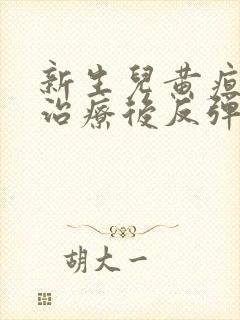 新生兒黃疸
治療後反彈
胡大一